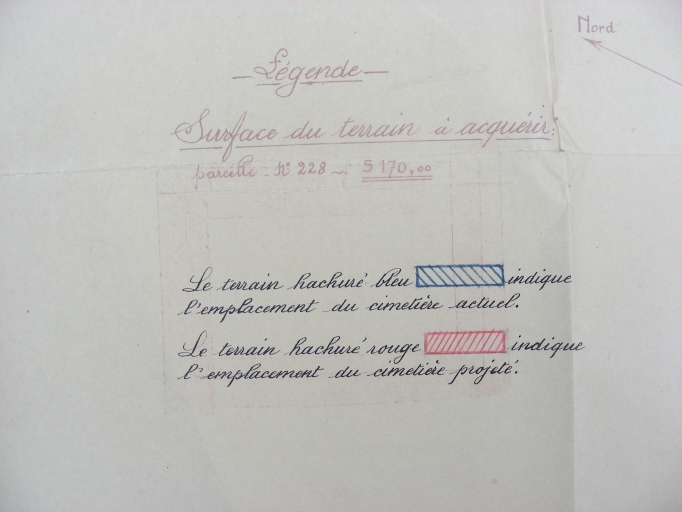 Nord
— Légende —
Surface du terrain à acquérir:
parcelle - N° 228 — 5170,00
Le terrain hachuré bleu indique
l'emplacement du cimetière actuel.
Le terrain hachuré rouge indique
l'emplacement du cimetière projeté.